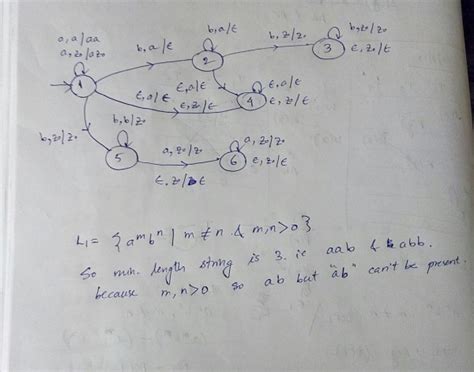 a, a/aa
a, z₀/az₀
b, a/ε
b, a/ε
b, z/z₀
b, z₀/z₀
ε, z₀/ε
1
2
3
ε, a/ε
ε, a/ε
ε, z/ε
ε, a/ε
ε, z/ε
4
b, z₀/z₀
b, b/z₀
5
a, z₀/z₀
ε, z₀/ε
6
a, z₀/z₀
ε, z₀/ε
L₁ = { aᵐbⁿ | m ≠ n & m,n>0 }
So min. length string is 3. ie aab & abb.
because m,n>0 so ab but "ab" can't be present.